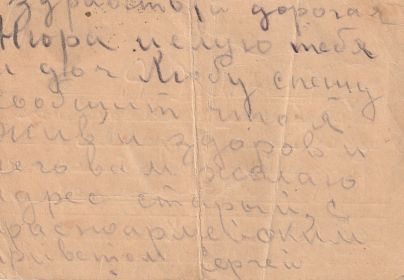 здравствуй дорогая
Нюра целую тебя
и доч Любу спешу
сообщит что я
жив и здоров и
чего вам желаю
адрес старый, с
красноармейским
приветом Сергей